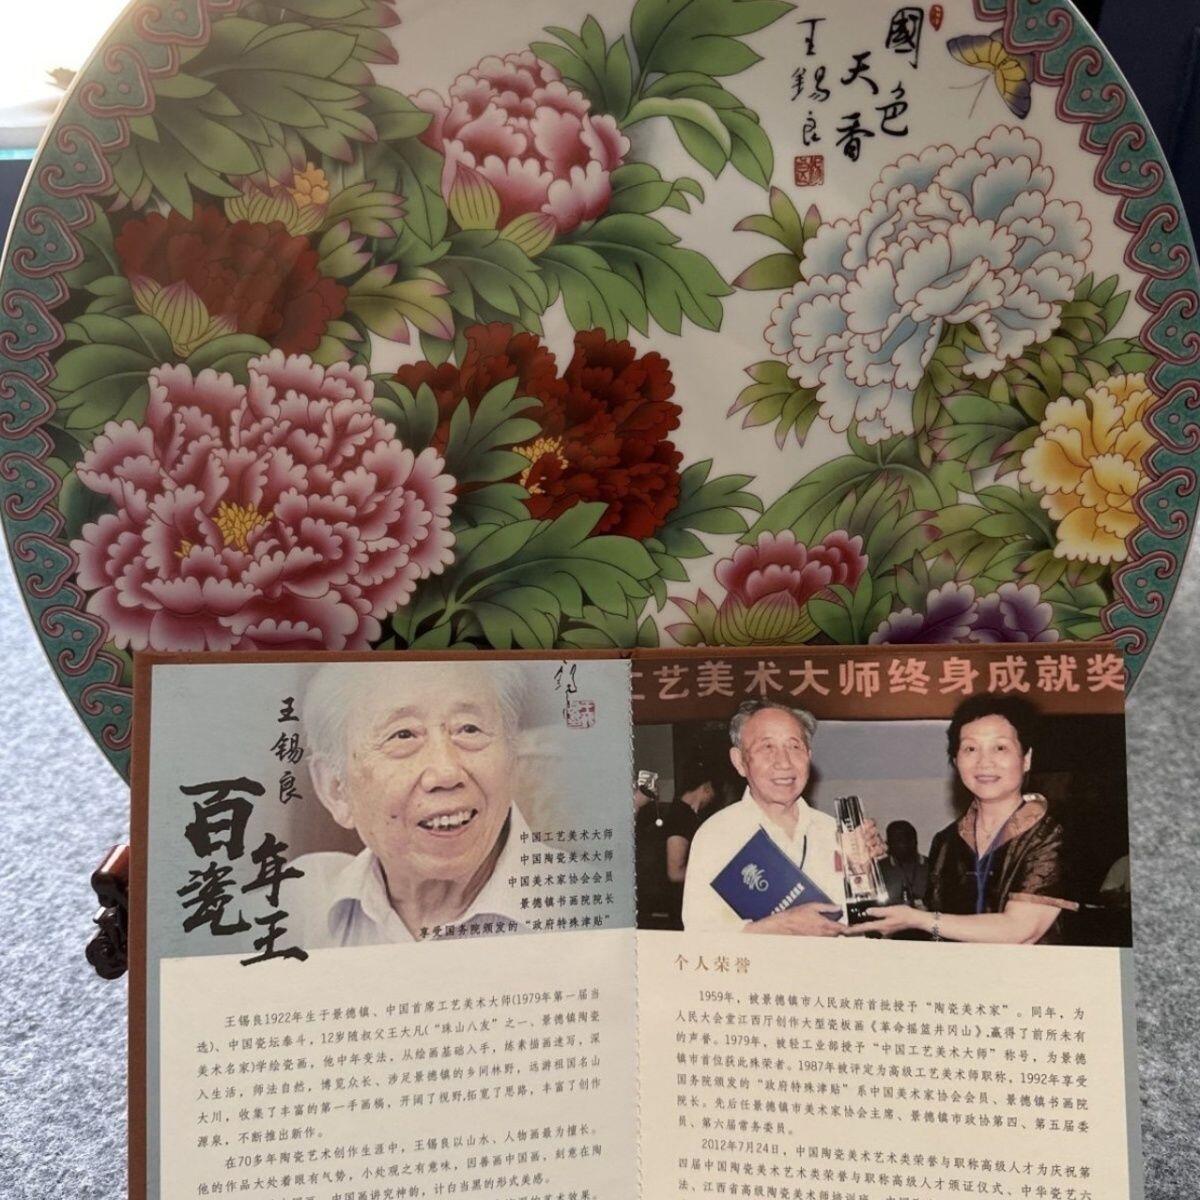 國色
天香
王錫良
王锡良
百年
瓷王
中国工艺美术大师
中国陶瓷美术大师
中国美术家协会会员
景德镇书画院院长
享受国务院颁发的“政府特殊津贴”
王锡良1922年生于景德镇、中国首席工艺美术大师(1979年第一届当
选)、中国瓷坛泰斗，12岁随叔父王大凡(“珠山八友”之一、景德镇陶瓷
美术名家)学绘瓷画，他中年变法，从绘画基础入手，练素描画速写，深
入生活，师法自然，博览众长、涉足景德镇的乡间林野，远游祖国名山
大川，收集了丰富的第一手画稿、开阔了视野,拓宽了思路，丰富了创作
源泉，不断推出新作。
在70多年陶瓷艺术创作生涯中，王锡良以山水、人物画最为擅长。
他的作品大处着眼有气势，小处观之有意味，因善画中国画，刻意在陶
中国画讲究神韵，计白当黑的形式美感。
工艺美术大师终身成就奖
个人荣誉
1959年，被景德镇市人民政府首批授予“陶瓷美术家”。同年，为
人民大会堂江西厅创作大型瓷板画《革命摇篮井冈山》,赢得了前所未有
的声誉。1979年，被轻工业部授予“中国工艺美术大师”称号，为景德
镇市首位获此殊荣者。1987年被评定为高级工艺美术师职称，1992年享受
国务院颁发的“政府特殊津贴”系中国美术家协会会员、景德镇书画院
院长。先后任景德镇市美术家协会主席、景德镇市政协第四、第五届委
员、第六届常务委员。
2012年7月24日，中国陶瓷美术艺术类荣誉与职称高级人才为庆祝第
四届中国陶瓷美术艺术类荣誉与职称高级人才颁证仪式、中华瓷立六
法、江西省高级陶瓷美术师培训班